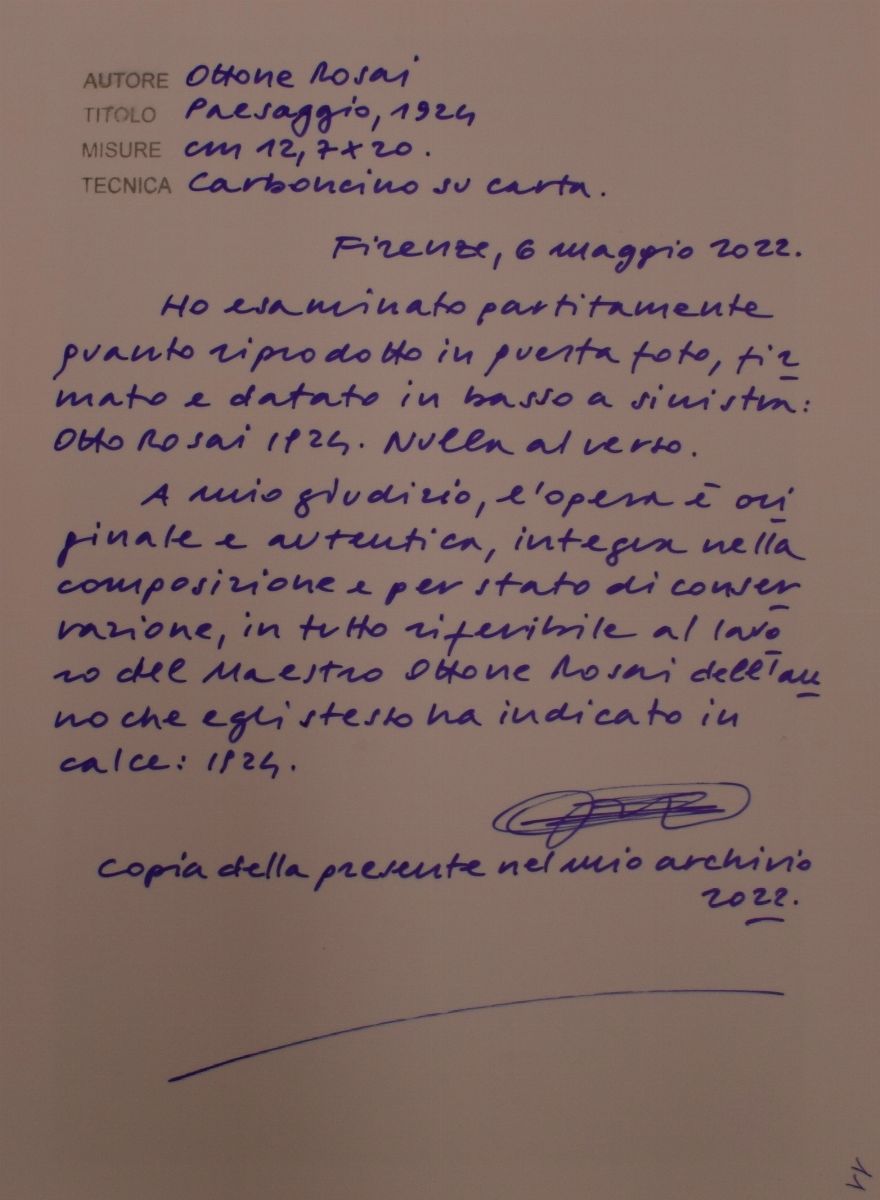 AUTORE Ottone Rosai
TITOLO Paesaggio, 1924
MISURE cm 12,7x20.
TECNICA Carboncino su carta.
Firenze, 6 maggio 2022.
Ho esaminato partitamente
quanto riprodotto in questa foto, fir
mato e datato in basso a sinistra:
Otto Rosai 1924. Nulla al verso.
A mio giudizio, l'opera è ori
ginale e autentica, integra nella
composizione e per stato di conser
vazione, in tutto riferibile al lavo
ro del Maestro Ottone Rosai dell'an
no che egli stesso ha indicato in
calce: 1924.
Copia della presente nel mio archivio
2022.
11